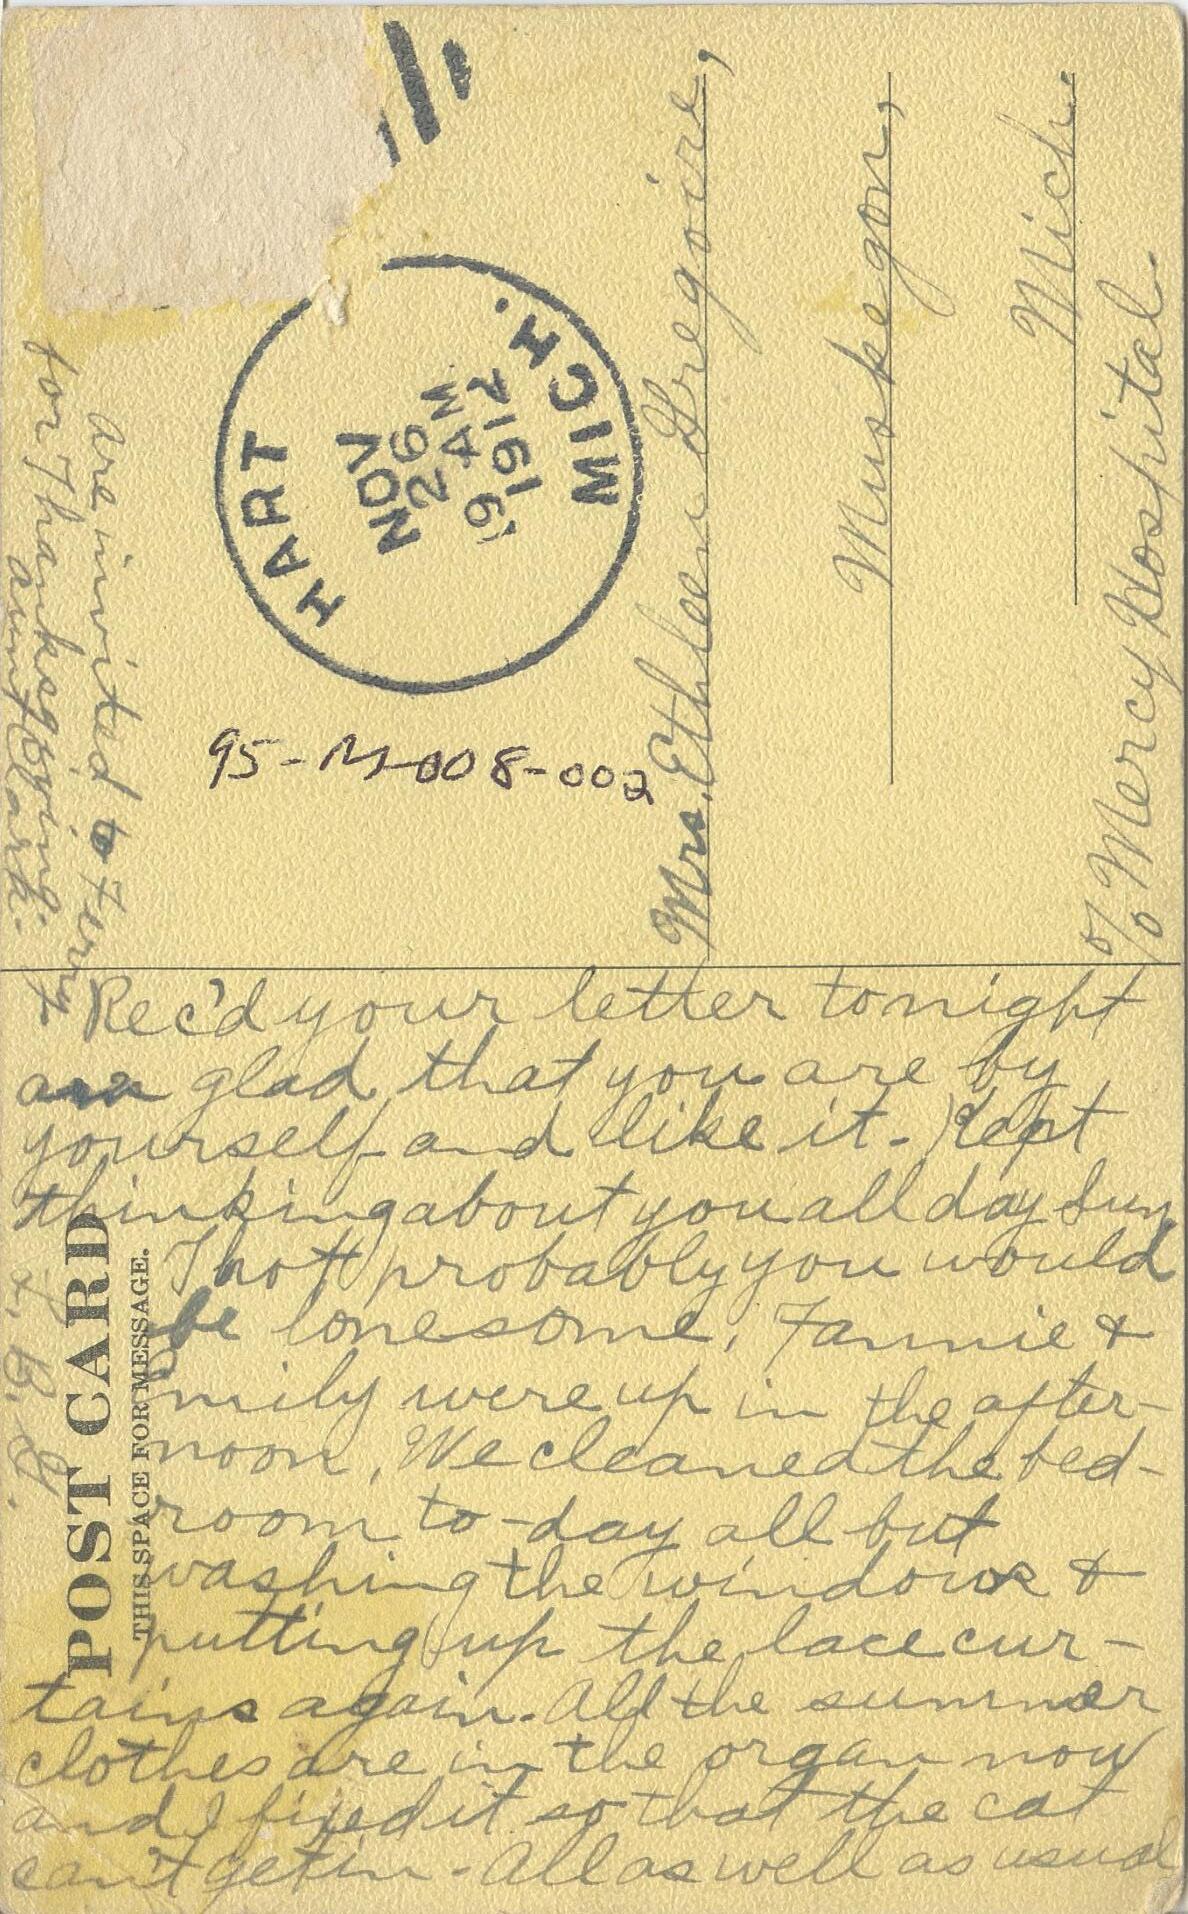 Rec'd your letter tonight
am glad that you are by
yourself and like it. Kept
thinking about you all day Sun.
Thot probably you would
be lonesome. Fannie &
Emily were up in the after-
noon. We cleaned the bed-
room to-day all but
washing the windows &
putting up the lace cur-
tains again. All the summer
clothes are in the organ now
and I fixed it so that the cat
can't get in. All as well as usual
are invited to Ferry
for Thanksgiving.
aunt Clark.
F. B. G.
POST CARD
THIS SPACE FOR MESSAGE.
HART MICH.
NOV
26
9 AM
1912
95-M-008-002
Mrs. Ethleen Gregoire,
Muskegon,
Mich.
% Mercy Hospital.